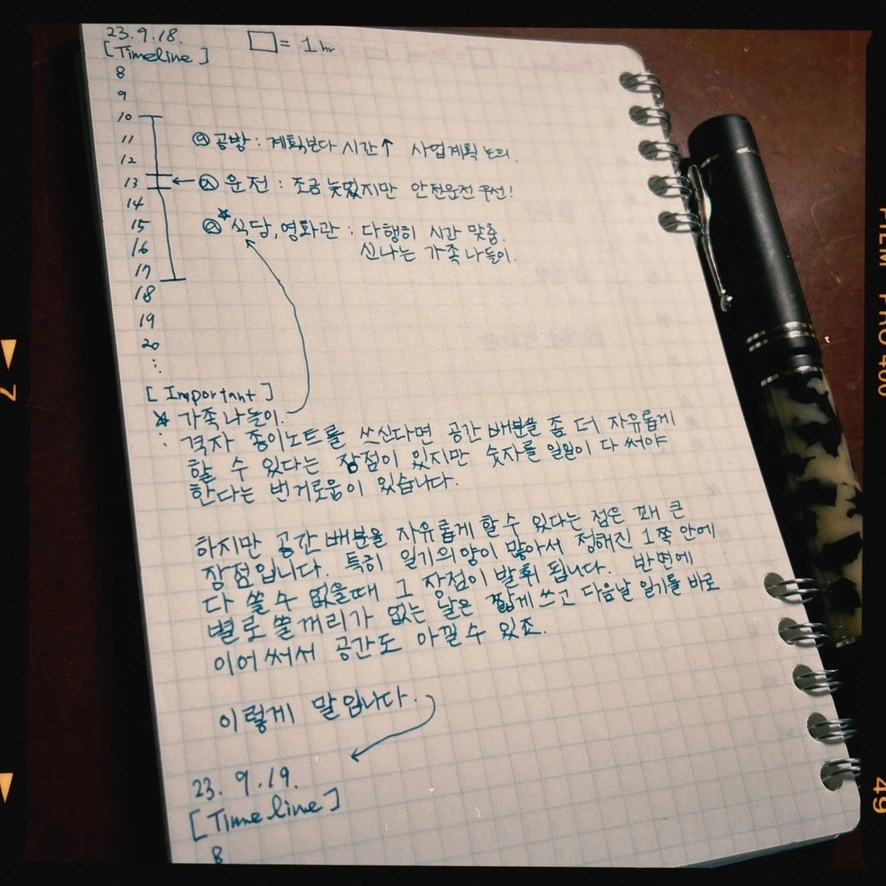 23.9.18. □= 1hr
[Timeline]
8
9
10
11 ㉮ 공방 : 계획보다 시간↑ 사업계획 논의.
12
13 ← ㉯ 운전 : 조금 늦었지만 안전운전 우선!
14
15 ㉰* 식당, 영화관 : 다행히 시간 맞춤.
16 신나는 가족 나들이.
17
18
19
20
⋮
[Important]
* 가족 나들이.
: 격자 종이노트를 쓰신다면 공간 배분을 좀 더 자유롭게
할 수 있다는 장점이 있지만 숫자를 일일이 다 써야
한다는 번거로움이 있습니다.
하지만 공간 배분을 자유롭게 할 수 있다는 점은 꽤 큰
장점입니다. 특히 일기의 양이 많아서 정해진 1쪽 안에
다 쓸 수 없을때 그 장점이 발휘 됩니다. 반면에
별로 쓸꺼리가 없는 날은 짧게 쓰고 다음날 일기를 바로
이어 써서 공간도 아낄 수 있죠.
이렇게 말입니다.
23. 9. 19.
[Timeline]
8
FILM PRO 400
7
49